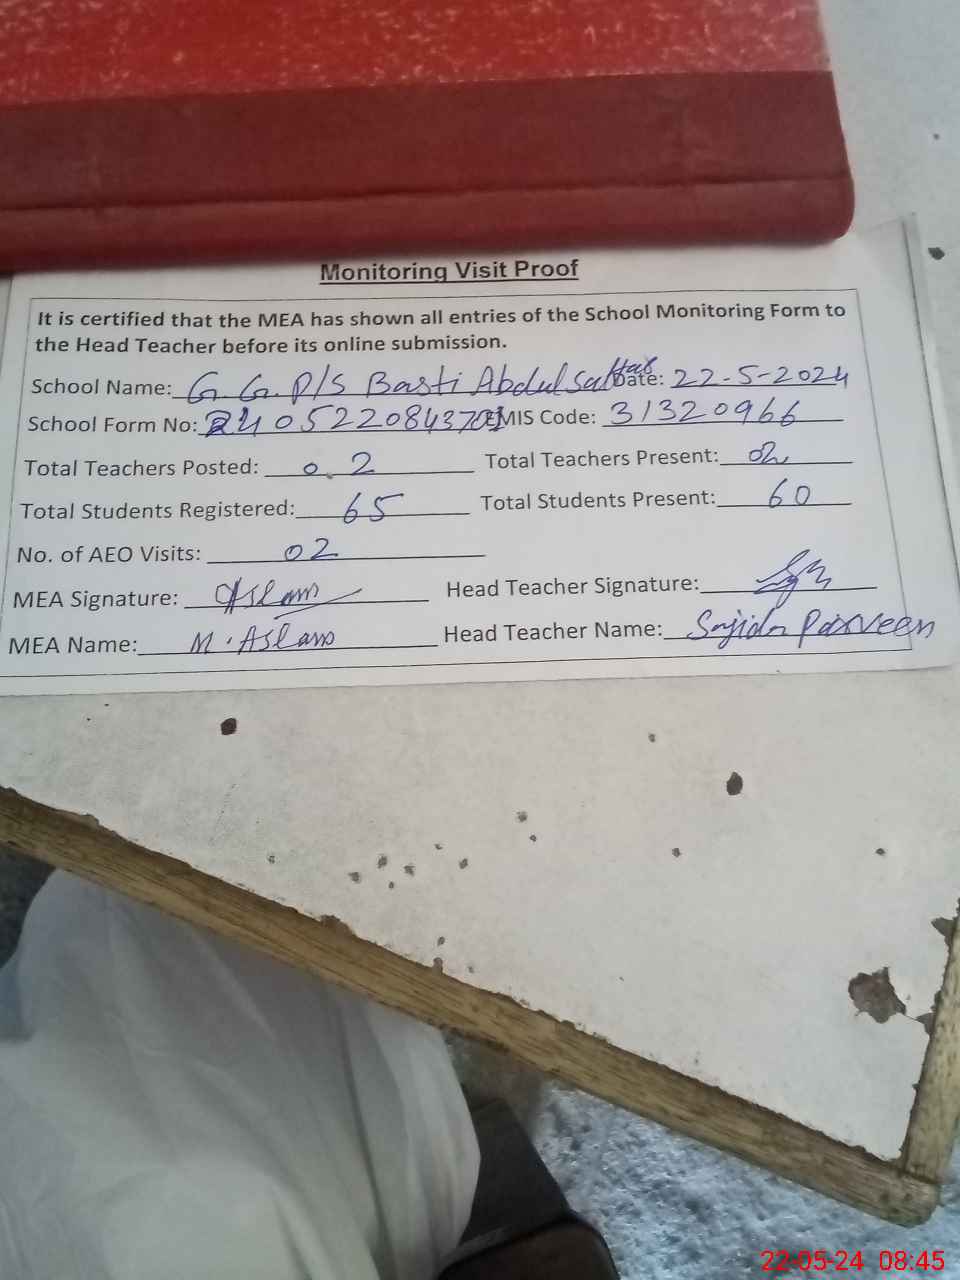 Monitoring Visit Proof
It is certified that the MEA has shown all entries of the School Monitoring Form to
the Head Teacher before its online submission.
School Name: G.G.P/S Basti Abdul Sattar Date: 22-5-2024
School Form No: EMIS Code: 31320966
Total Teachers Posted: 0.2 Total Teachers Present: 02
Total Students Registered: 65 Total Students Present: 60
No. of AEO Visits: 02
MEA Signature: Aslam Head Teacher Signature:
MEA Name: M. Aslam Head Teacher Name: Sajida Parveen
22-05-24 08:45